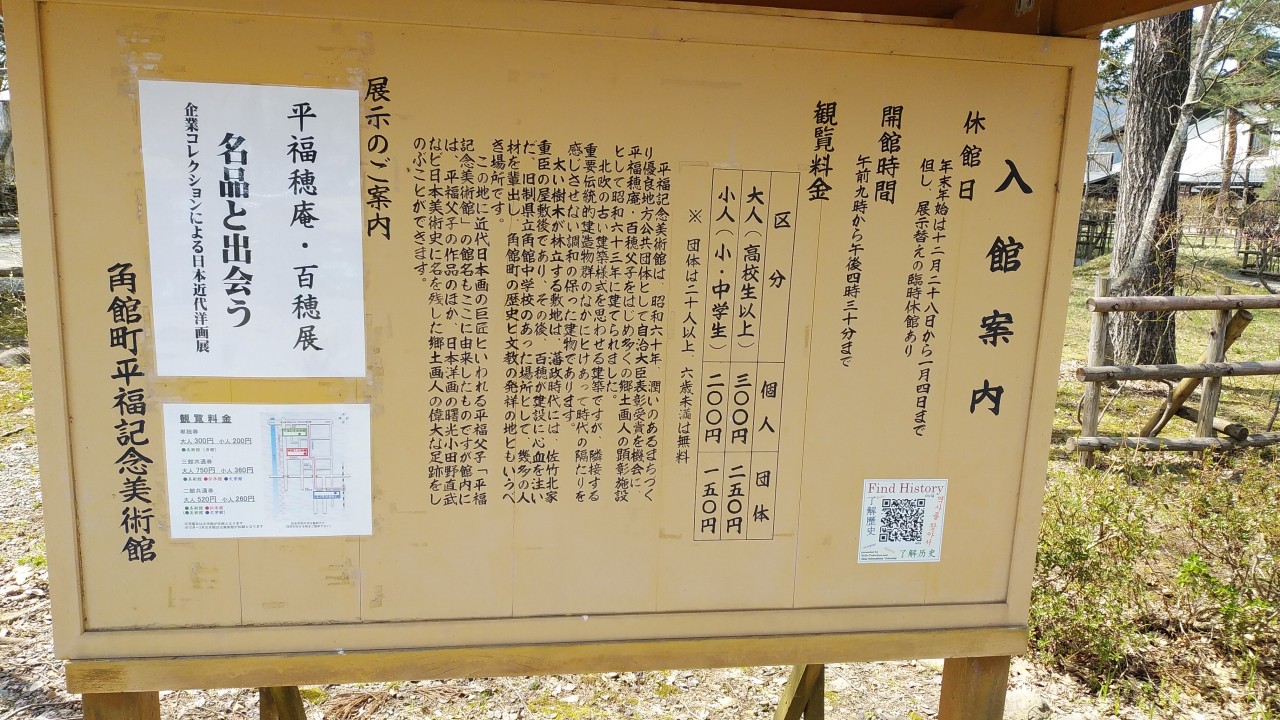 入館案内
休館日
年末年始は十二月二十八日から一月四日まで
但し、展示替えの臨時休館あり
開館時間
午前九時から午後四時三十分まで
観覧料金
区分 個人 団体
大人(高校生以上) 三〇〇円 二五〇円
小人(小・中学生) 二〇〇円 一五〇円
※ 団体は二十人以上、六歳未満は無料
平福記念美術館は、昭和六十年、潤いのあるまちづく
り優良地方公共団体として自治大臣表彰受賞を機会に
平福穂庵・百穂父子をはじめ多くの郷土画人の顕彰施設
として昭和六十三年に建てられました。
北欧の古い建築様式を思わせる建築ですが、隣接する
重要伝統的建造物群のなかにとけあって時代の隔たりを
感じさせない調和の保った建物であります。
太い樹木が林立する敷地は、藩政時代には、佐竹北家
重臣の屋敷後であり、その後、百穂が建設に心血を注い
だ、旧制県立角館中学校のあった場所として、幾多の人
材を輩出し、角館町の歴史と文教の発祥の地ともいうべ
き場所です。
この地に近代日本画の巨匠といわれる平福父子「平福
記念美術館」の館名もここに由来したものですが館内に
は、平福父子の作品のほか、日本洋画の曙光小田野直武
など日本美術史に名を残した郷土画人の偉大な足跡をし
のぶことができます。
展示のご案内
平福穂庵・百穂展
名品と出会う
企業コレクションによる日本近代洋画展
角館町平福記念美術館
観覧料金
単独券
大人 300円 小人 200円
三館共通券
大人 750円 小人 360円
二館共通券
大人 520円 小人 260円
Find History
了解歴史
了解历史